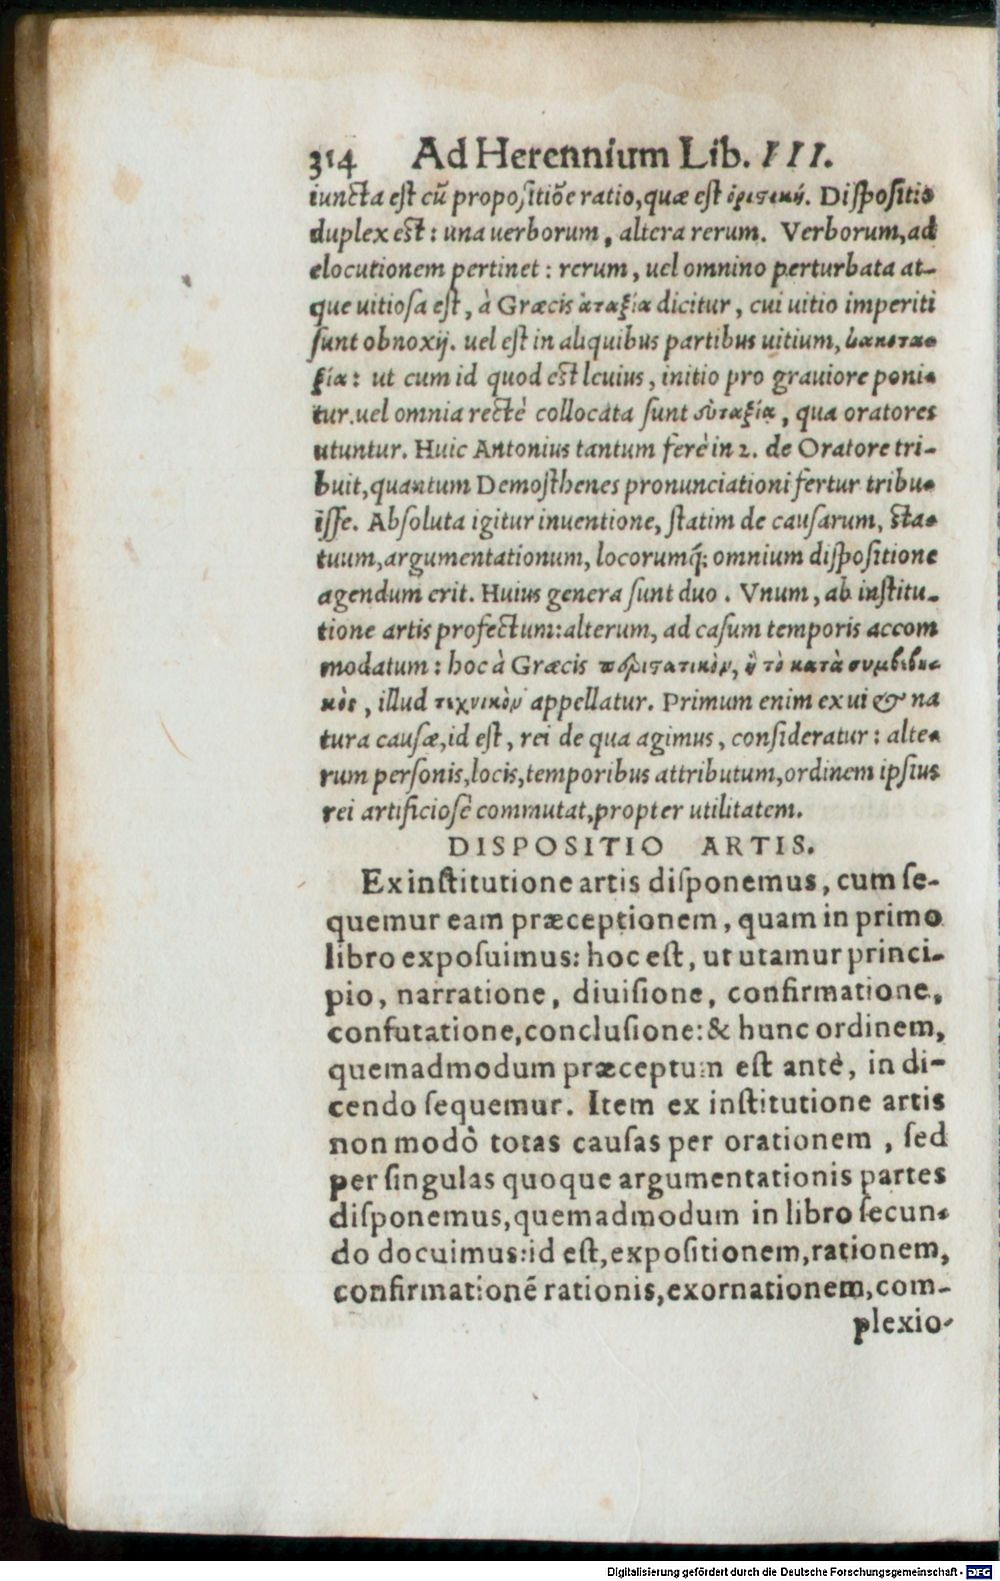 314 Ad Herennium Lib. III.
iuncta est cũ propositiõe ratio, quæ est ὁριστική. Dispositio
duplex est: una uerborum, altera rerum. Verborum, ad
elocutionem pertinet: rerum, uel omnino perturbata at-
que uitiosa est, à Græcis ἀταξία dicitur, cui uitio imperiti
sunt obnoxij. uel est in aliquibus partibus uitium,
ξία: ut cum id quod est leuius, initio pro grauiore poni-
tur. uel omnia rectè collocata sunt ἐυταξία, qua oratores
utuntur. Huic Antonius tantum ferè in 2. de Oratore tri-
buit, quantum Demosthenes pronunciationi fertur tribu-
isse. Absoluta igitur inuentione, statim de causarum, sta-
tuum, argumentationum, locorumq́; omnium dispositione
agendum erit. Huius genera sunt duo. Vnum, ab institu-
tione artis profectum: alterum, ad casum temporis accom
modatum: hoc à Græcis περιστατικὸν, ἢ τὸ κατὰ συμβεβη-
κὸς, illud τεχνικὸν appellatur. Primum enim ex ui & na
tura causæ, id est, rei de qua agimus, consideratur: alte-
rum personis, locis, temporibus attributum, ordinem ipsius
rei artificiosè commutat, propter utilitatem.
DISPOSITIO ARTIS.
Ex institutione artis disponemus, cum se-
quemur eam præceptionem, quam in primo
libro exposuimus: hoc est, ut utamur princi-
pio, narratione, diuisione, confirmatione,
confutatione, conclusione: & hunc ordinem,
quemadmodum præceptum est antè, in di-
cendo sequemur. Item ex institutione artis
non modò totas causas per orationem, sed
per singulas quoque argumentationis partes
disponemus, quemadmodum in libro secun-
do docuimus: id est, expositionem, rationem,
confirmationẽ rationis, exornationem, com-
plexio-
Digitalisierung gefördert durch die Deutsche Forschungsgemeinschaft - DFG